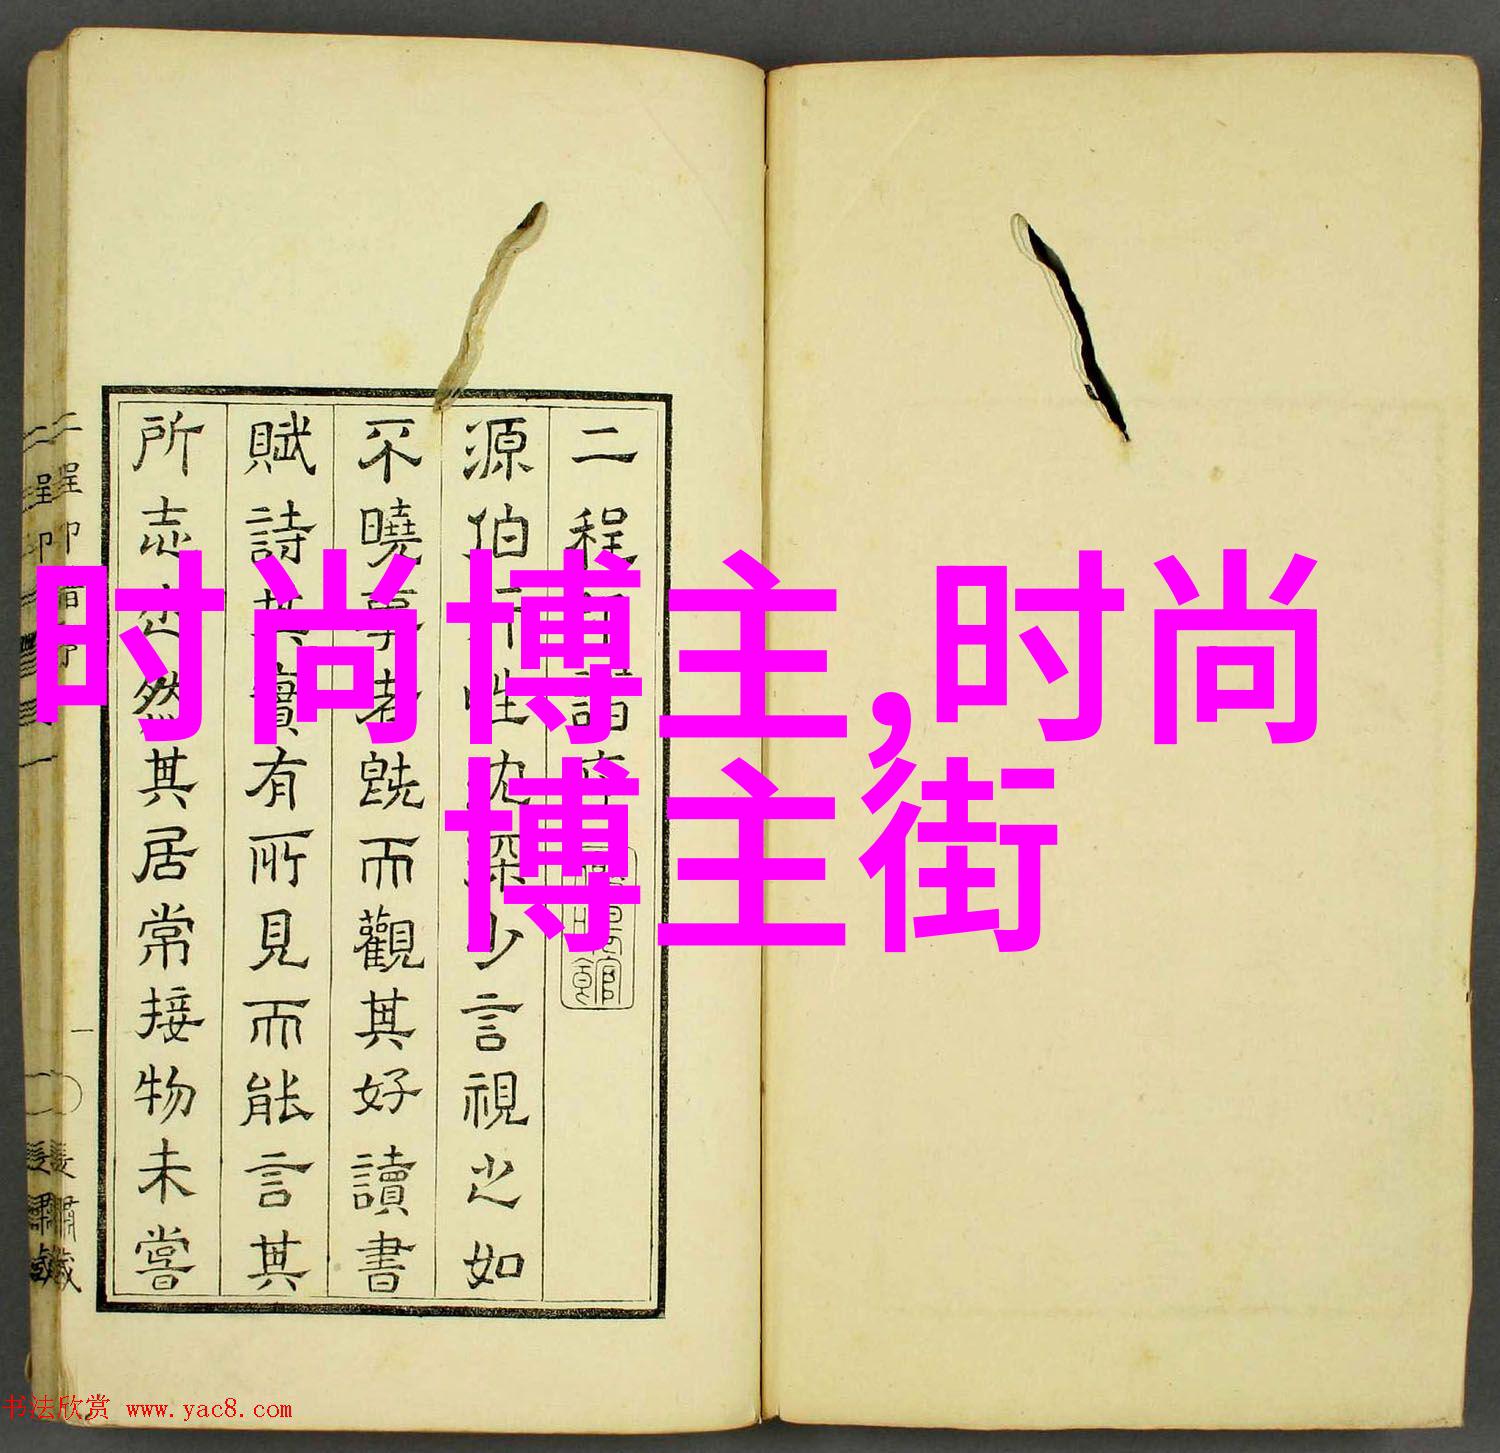 时尚博主,时尚
博主街
源伯 性 深少言視之如
不曉事者旣而觀其好讀書
賦詩其實有所見而能言其
所志也然其居常接物未嘗
書法欣赏 www.yac8.com